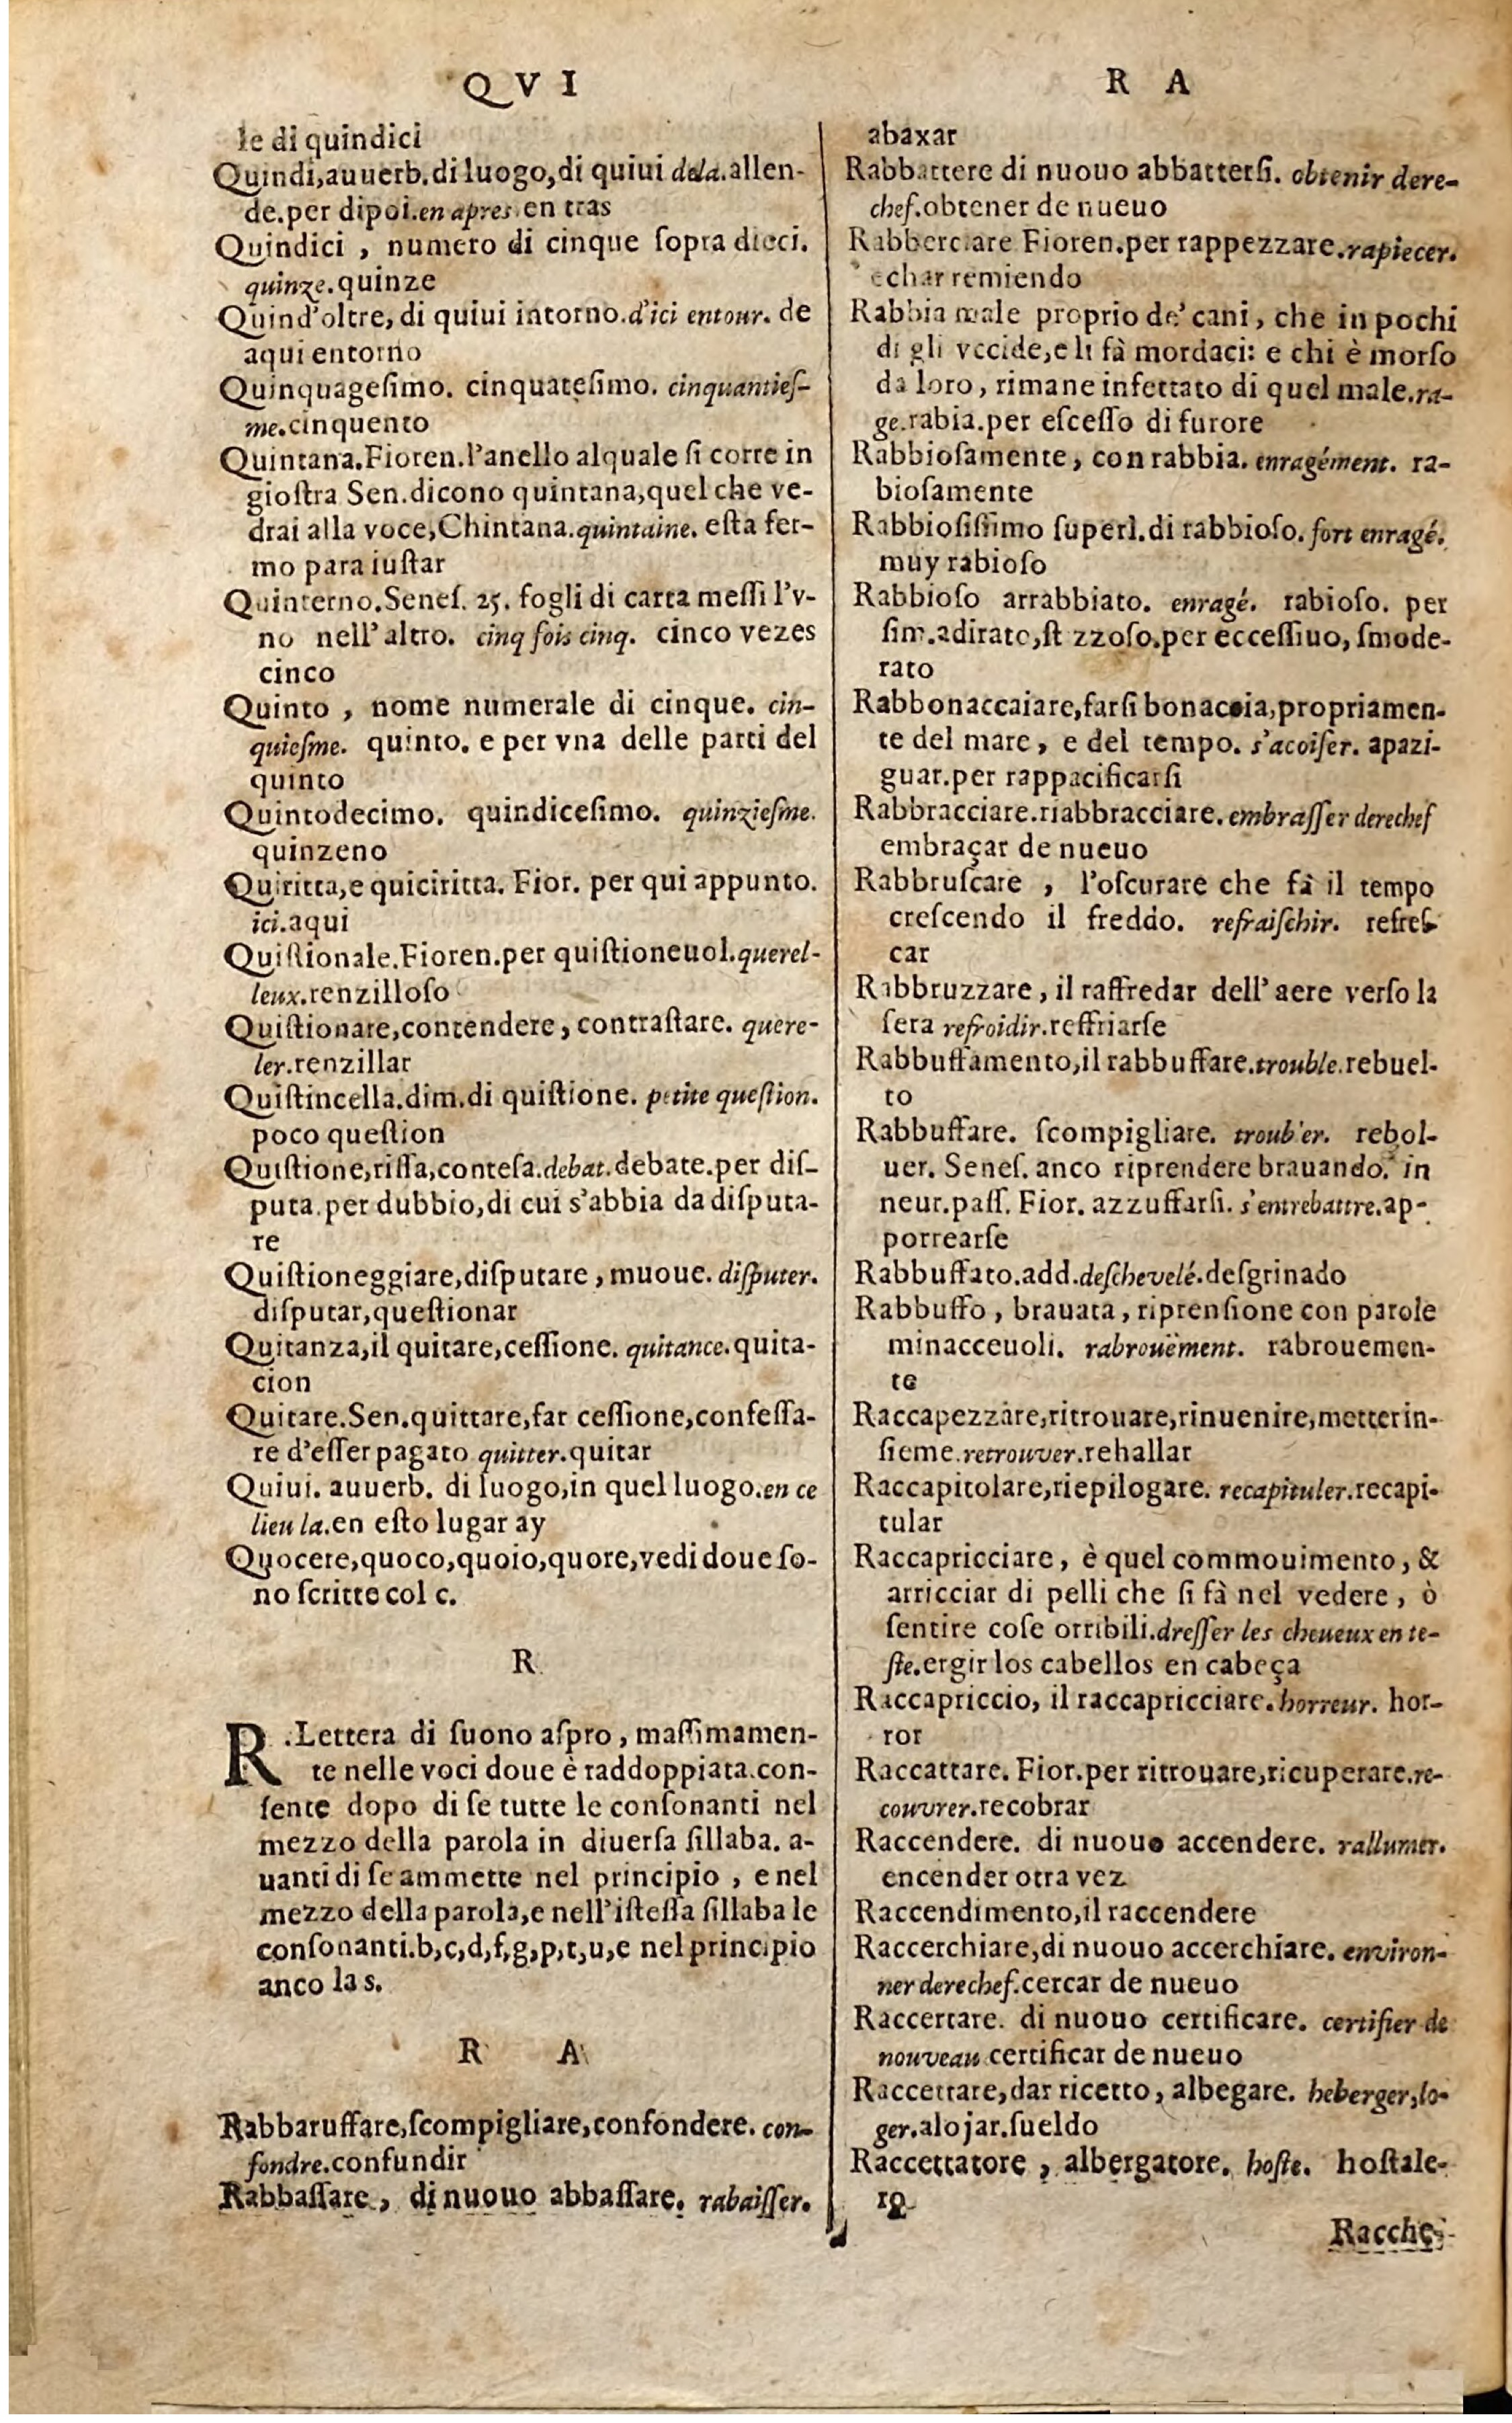 QVI
le di quindici
Quindi,auuerb.di luogo,di quiui dela.allen-
de.per dipoi.en apres.en tras
Quindici , numero di cinque ſopra dieci.
quinze.quinze
Quind'oltre, di quiui intorno.d'ici entour. de
aqui entorno
Quinquageſimo. cinquateſimo. cinquantieſ-
me.cinquento
Quintana.Fioren.l'anello alquale ſi corre in
gioſtra Sen.dicono quintana,quel che ve-
drai alla voce,Chintana.quintaine. eſta fer-
mo para iuſtar
Quinterno.Seneſ. 25. fogli di carta meſſi l'v-
no nell'altro. cinq fois cinq. cinco vezes
cinco
Quinto , nome numerale di cinque. cin-
quieſme. quinto. e per vna delle parti del
quinto
Quintodecimo. quindiceſimo. quinzieſme.
quinzeno
Quiritta,e quiciritta. Fior. per qui appunto.
ici.aqui
Quiſtionale.Fioren.per quiſtioneuol.querel-
leux.renzilloſo
Quiſtionare,contendere, contraſtare. quere-
ler.renzillar
Quiſtincella.dim.di quiſtione. petite queſtion.
poco queſtion
Quiſtione,riſſa,conteſa.debat.debate.per diſ-
puta.per dubbio,di cui s'abbia da diſputa-
re
Quiſtioneggiare,diſputare , muoue. diſputer.
diſputar,queſtionar
Quitanza,il quitare,ceſſione. quitance.quita-
cion
Quitare.Sen.quittare,far ceſſione,confeſſa-
re d'eſſer pagato quitter.quitar
Quiui. auuerb. di luogo,in quel luogo.en ce
lieu la.en eſto lugar ay
Quocere,quoco,quoio,quore,vedi doue ſo-
no ſcritte col c.
R
R .Lettera di ſuono aſpro , maſſimamen-
te nelle voci doue è raddoppiata.con-
ſente dopo di ſe tutte le conſonanti nel
mezzo della parola in diuerſa ſillaba. a-
uanti di ſe ammette nel principio , e nel
mezzo della parola,e nell'iſteſſa ſillaba le
conſonanti.b,c,d,f,g,p,t,u,e nel principio
anco la s.
R A
Rabbaruffare,ſcompigliare,confondere. con-
fondre.confundir
Rabbaſſare , di nuouo abbaſſare. rabaiſſer.
R A
abaxar
Rabbattere di nuouo abbatterſi. obtenir dere-
chef.obtener de nueuo
Rabberciare Fioren.per rappezzare.rapiecer.
echar remiendo
Rabbia male proprio de' cani , che in pochi
di gli vccide,e li fà mordaci: e chi è morſo
da loro , rimane infettato di quel male.ra-
ge.rabia.per eſceſſo di furore
Rabbioſamente, con rabbia. enragément. ra-
bioſamente
Rabbioſiſſimo ſuperl.di rabbioſo. fort enragé.
muy rabioſo
Rabbioſo arrabbiato. enragé. rabioſo. per
ſim.adirato,ſt zzoſo.per ecceſſiuo, ſmode-
rato
Rabbonaccaiare,farſi bonaccia,propriamen-
te del mare , e del tempo. s'acoiſer. apazi-
guar.per rappacificarſi
Rabbracciare.riabbracciare. embraſſer derechef
embraçar de nueuo
Rabbruſcare , l'oſcurare che fà il tempo
creſcendo il freddo. refraiſchir. refreſ-
car
Rabbruzzare , il raffredar dell'aere verſo la
ſera refroidir.reffriarſe
Rabbuffamento,il rabbuffare.trouble.rebuel-
to
Rabbuffare. ſcompigliare. troub'er. rebol-
uer. Seneſ. anco riprendere brauando. in
neur.paſſ. Fior. azzuffarſi. s'entrebattre.ap-
porrearſe
Rabbuffato.add.deſchevelé.deſgrinado
Rabbuffo , brauata , riprenſione con parole
minacceuoli. rabrouëment. rabrouemen-
te
Raccapezzare,ritrouare,rinuenire,metter in-
ſieme.retrouver.rehallar
Raccapitolare,riepilogare. recapituler.recapi-
tular
Raccapricciare , è quel commouimento , &
arricciar di pelli che ſi fà nel vedere , ò
ſentire coſe orribili.dreſſer les cheueux en te-
ſte.ergir los cabellos en cabeça
Raccapriccio, il raccapricciare.horreur. hor-
ror
Raccattare. Fior.per ritrouare,ricuperare.re-
couvrer.recobrar
Raccendere. di nuouo accendere. rallumer.
encender otra vez
Raccendimento,il raccendere
Raccerchiare,di nuouo accerchiare. environ-
ner derechef.cercar de nueuo
Raccertare. di nuouo certificare. certifier de
nouveau certificar de nueuo
Raccettare,dar ricetto, albegare. heberger,lo-
ger.alojar.ſueldo
Raccettatore , albergatore. hoſte. hoſtale-
ro
Racche-